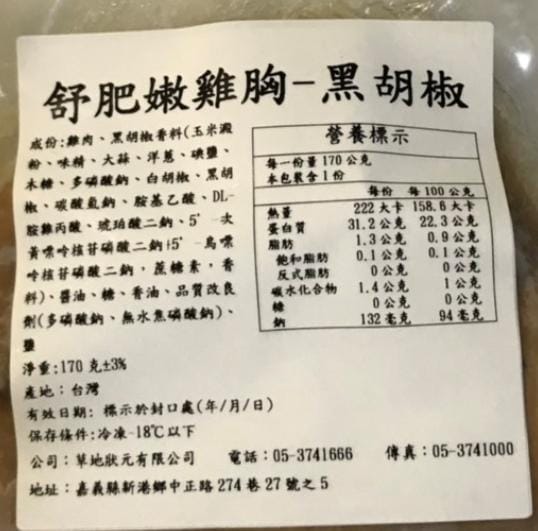 舒肥嫩雞胸-黑胡椒
成份:雞肉、黑胡椒香料(玉米澱
粉、味精、大蒜、洋蔥、碘鹽、
木糖、多磷酸鈉、白胡椒、黑胡
椒、碳酸氫鈉、胺基乙酸、DL-
胺雞丙酸、琥珀酸二鈉、5’-次
黃嘌呤核苷磷酸二鈉+5’-鳥嘌
呤核苷磷酸二鈉,蔗糖素,香
料)、醬油、糖、香油、品質改良
劑(多磷酸鈉、無水焦磷酸鈉)、
鹽
營養標示
每一份量170公克
本包裝含1份
每份 每100公克
熱量 222大卡 158.6大卡
蛋白質 31.2公克 22.3公克
脂肪 1.3公克 0.9公克
飽和脂肪 0.1公克 0.1公克
反式脂肪 0公克 0公克
碳水化合物 1.4公克 1公克
糖 0公克 0公克
鈉 132毫克 94毫克
淨重:170克±3%
產地:台灣
有效日期: 標示於封口處(年/月/日)
保存條件:冷凍-18℃以下
公司:草地狀元有限公司 電話:05-3741666 傳真:05-3741000
地址:嘉義縣新港鄉中正路274巷27號之5